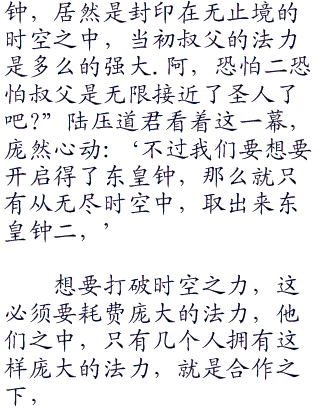 钟，居然是封印在无止境的
时空之中，当初叔父的法力
是多么的强大.阿，恐怕二恐
怕叔父是无限接近了圣人了
吧?”陆压道君看着这一幕，
庞然心动:‘不过我们要想要
开启得了东皇钟，那么就只
有从无尽时空中，取出来东
皇钟二，’
想要打破时空之力，这
必须要耗费庞大的法力，他
们之中，只有几个人拥有这
样庞大的法力，就是合作之
下，